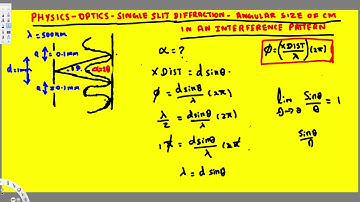 PHYSICS-OPTICS-SINGLE SLIT DIFFRACTION - ANGULAR SIZE OF CM
IN AN INTERFERENCE PATTERN
λ = 500nm
a = 0.1mm
d=1m
α=2θ
a = 0.1mm
α = ?
XDIST = d sinθ
ϕ = d sinθ/λ (2π)
λ/2 = d sinθ/λ (2π)
1π = d sinθ/λ (2π)
λ = d sinθ
ϕ = (XDIST/λ)(2π)
lim θ→θ sinθ/θ = 1
sinθ/θ